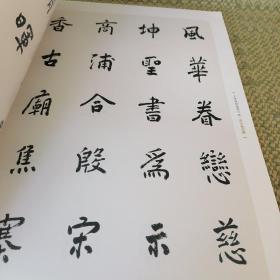 風華眷戀慈
坤聖書爲示
高浦合殷宋
香古廟焦寒